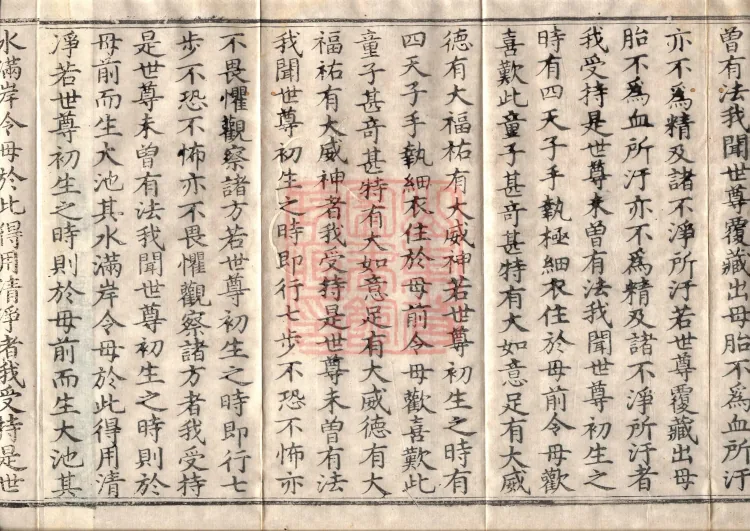 曾有法我聞世尊覆藏出母胎不為血所汙
亦不為精及諸不淨所汙若世尊覆藏出母
胎不為血所汙亦不為精及諸不淨所汙者
我受持是世尊未曾有法我聞世尊初生之
時有四天子手執極細衣住於母前令母歡
喜歎此童子甚竒甚特有大如意足有大威
德有大福祐有大威神若世尊初生之時有
四天子手執細衣住於母前令母歡喜歎此
童子甚竒甚特有大如意足有大威德有大
福祐有大威神者我受持是世尊未曾有法
我聞世尊初生之時即行七步不恐不怖亦
不畏懼觀察諸方若世尊初生之時即行七
步不恐不怖亦不畏懼觀察諸方者我受持
是世尊未曾有法我聞世尊初生之時則於
母前而生大池其水滿岸令母於此得用清
淨若世尊初生之時則於母前而生大池其
水滿岸令母於此得用清淨者我受持是世